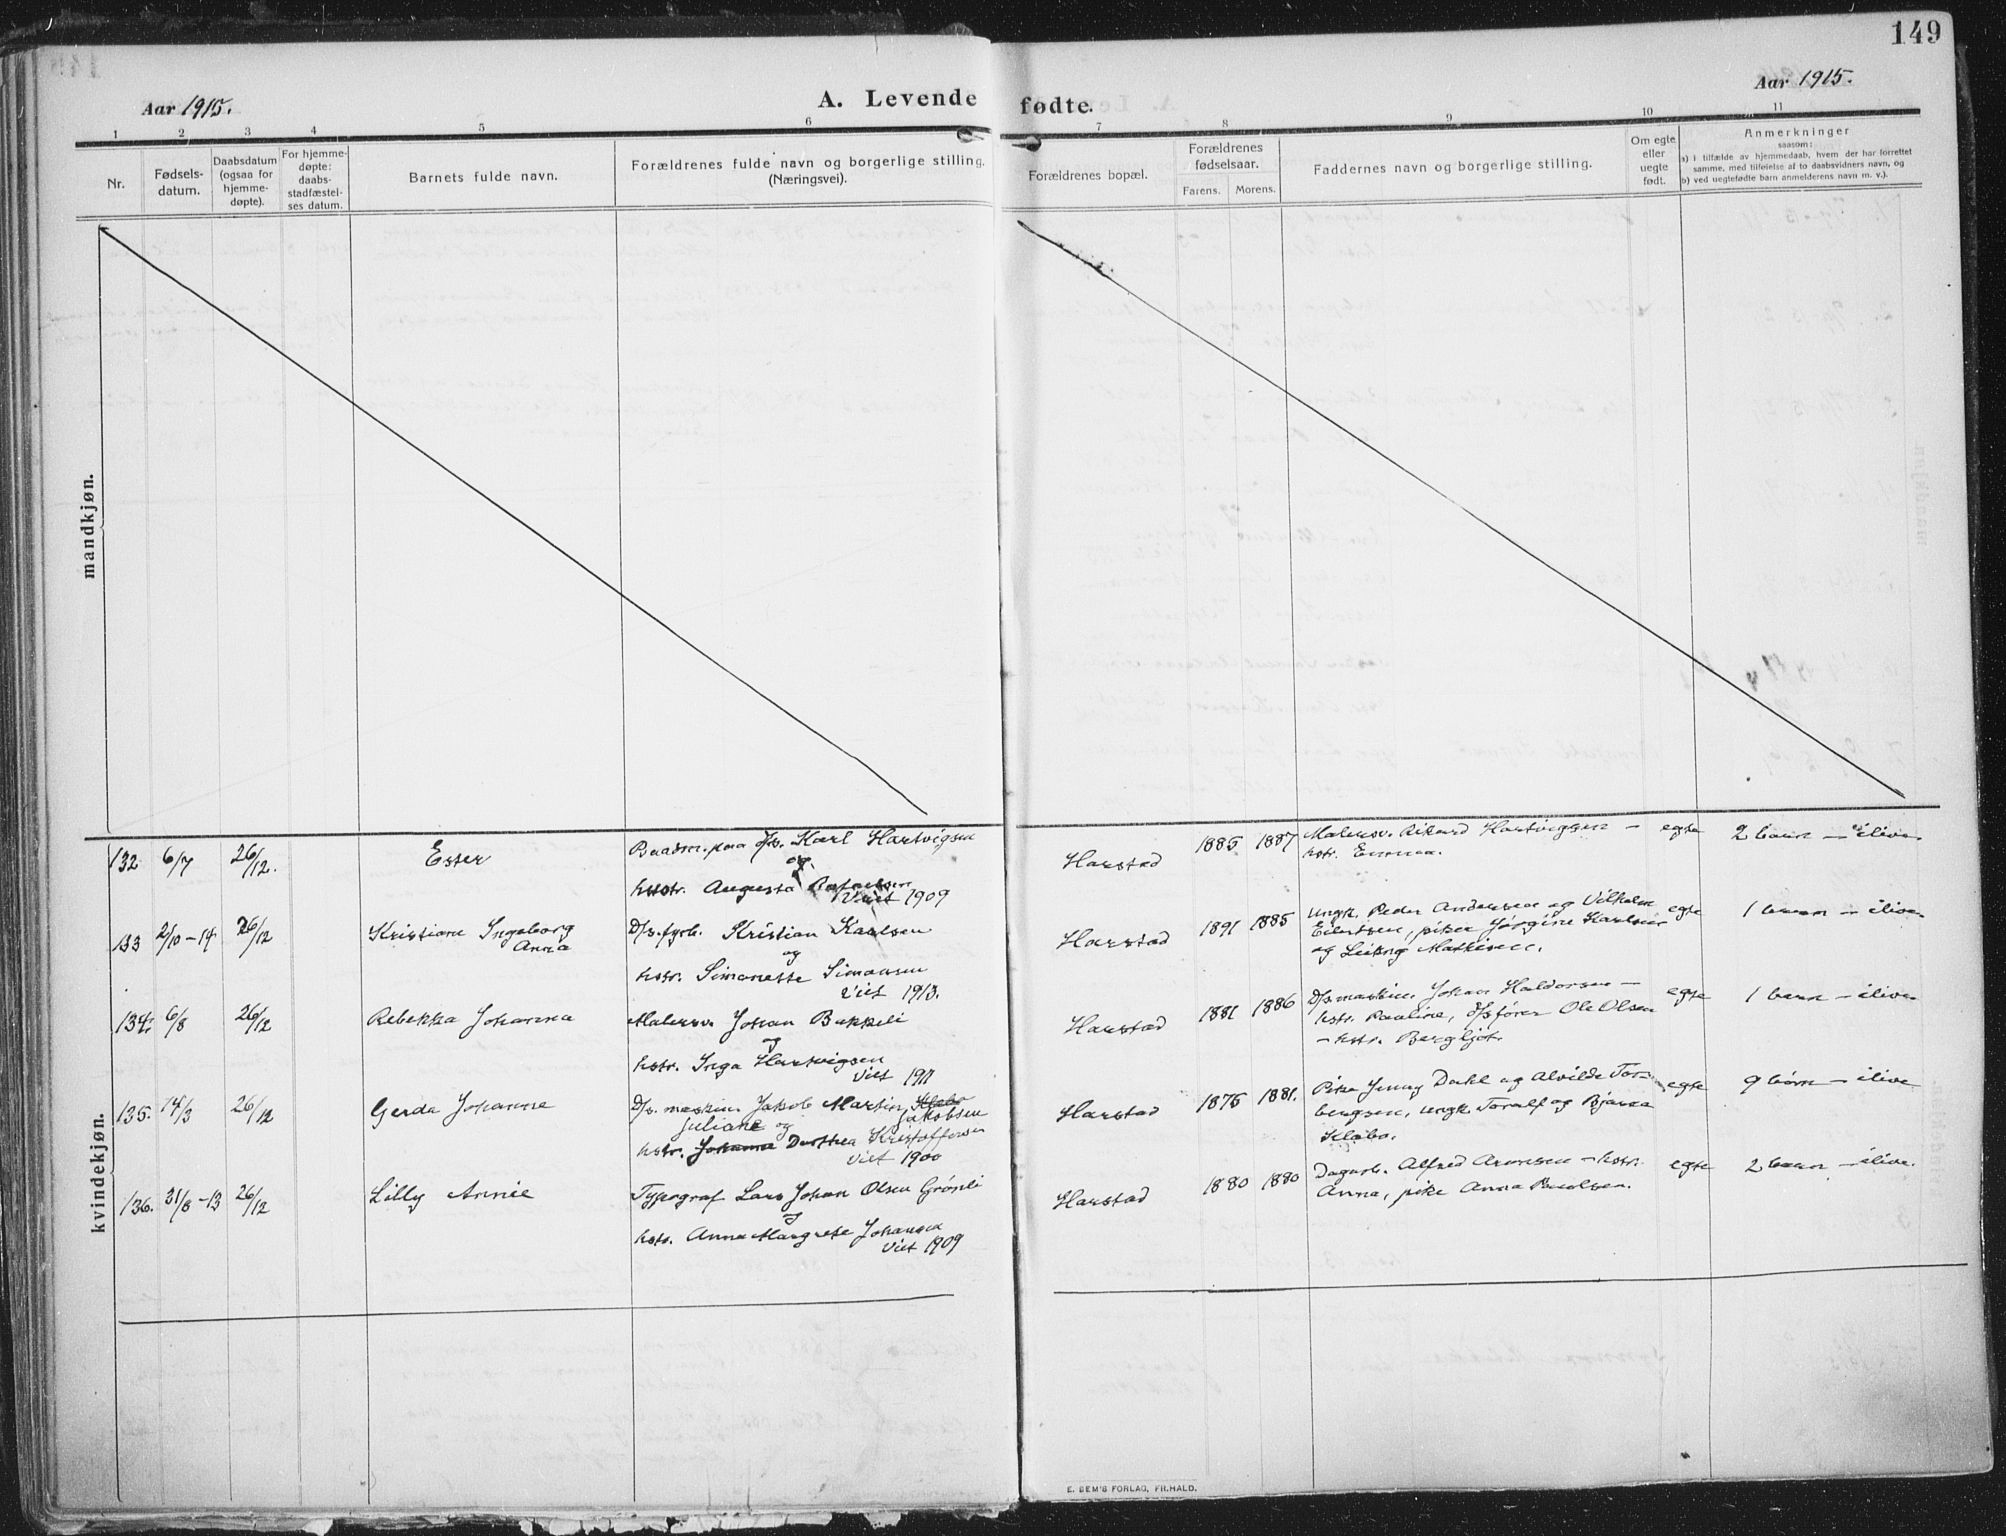 149
Aar 1915.
A. Levende fødte.
Aar 1915.
1 2 3 4 5 6 7 8 9 10 11
Nr.
Fødsels-
datum.
Daabsdatum
(ogsaa for
hjemme-
døpte).
For hjemme-
døpte:
daabs-
stadfæstel-
ses datum.
Barnets fulde navn.
Forældrenes fulde navn og borgerlige stilling.
(Næringsvei).
Forældrenes bopæl.
Forældrenes
fødselsaar.
Farens. Morens.
Faddernes navn og borgerlige stilling.
Om egte
eller
uegte
født.
Anmerkninger
saasom:
a) i tilfælde av hjemmedaab, hvem der har forrettet
samme, med tilføielse af to daabsvidners navn, og
b) ved uegtefødte barn anmelderens navn m. v.).
mandkjøn.
kvindekjøn.
132 6/7 26/12. Ester
Baadsm. paa d/s. Karl Hartvigsen
og
hstr. Augusta
Viet 1909
Harstad 1885 1887
Malersv. Rikard Hartvigsen –
hstr. Emma.
egte 2 barn – ilive
133 2/10 – 14 26/12 Kristiane Ingeborg
Anna
D/s. fyrb. Kristian Karlsen
og
hstr. Simonette Simonsen
Viet 1913.
Harstad 1891 1885
ungk. Peder Andersen og Vilhelm
Eilertsen, piker Jørgine Karlsen
og Mathisen.
egte 1 barn – ilive
134. 6/8 26/12 Rebekka Johanna
Malersv. Johan Bakkeli
og
hstr. Inga Hartvigsen
Viet 1911
Harstad 1881 1886
D/s. maskin. Johan Haldorsen –
hstr. Pauline, d/s fører Ole Olsen
– hstr. Bergljot.
egte 1 barn – ilive
135. 14/3 26/12 Gerda Johanne
D/s. maskin. Jakob Martin Klæbo
Juliane og Jakobsen
hstr. Johanna Dorthea Kristoffersen
Viet 1900
Harstad 1875 1881.
Pike Jenny Dahl og Alvilde Tor-
bergsen, ungk. Toralf og Bjarne
Klæbo.
egte 9 børn – ilive
136. 31/8 – 13 26/12 Lilly Annie
Typograf Lars Johan Olsen Grønli
og
hstr. Anna Margrete Johanna
Viet 1909
Harstad 1880 1880
Dagarb. Alfred Arntsen – hstr.
Anna, pike Anna Paulsen.
egte 2 barn – ilive.
E. SEM'S FORLAG, FR.HALD.